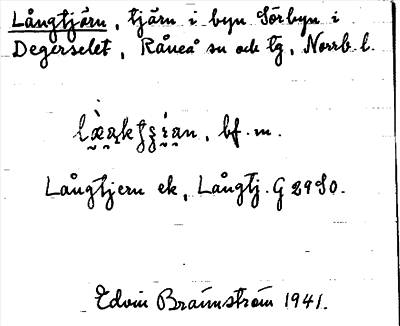 Långtjärn, tjärn i byn Sörbyn i
Degerselet, Råneå sn och tg, Norrb. l.
bf. m.
Långtjern ek, Långtj. G 2980.
Edvin Brännström 1941.